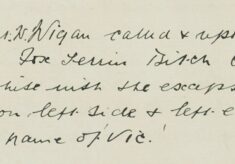 W. Wigan called & 
Fox Terrier Bitch
with the excep
on left side & left e
name of 'Vic.'